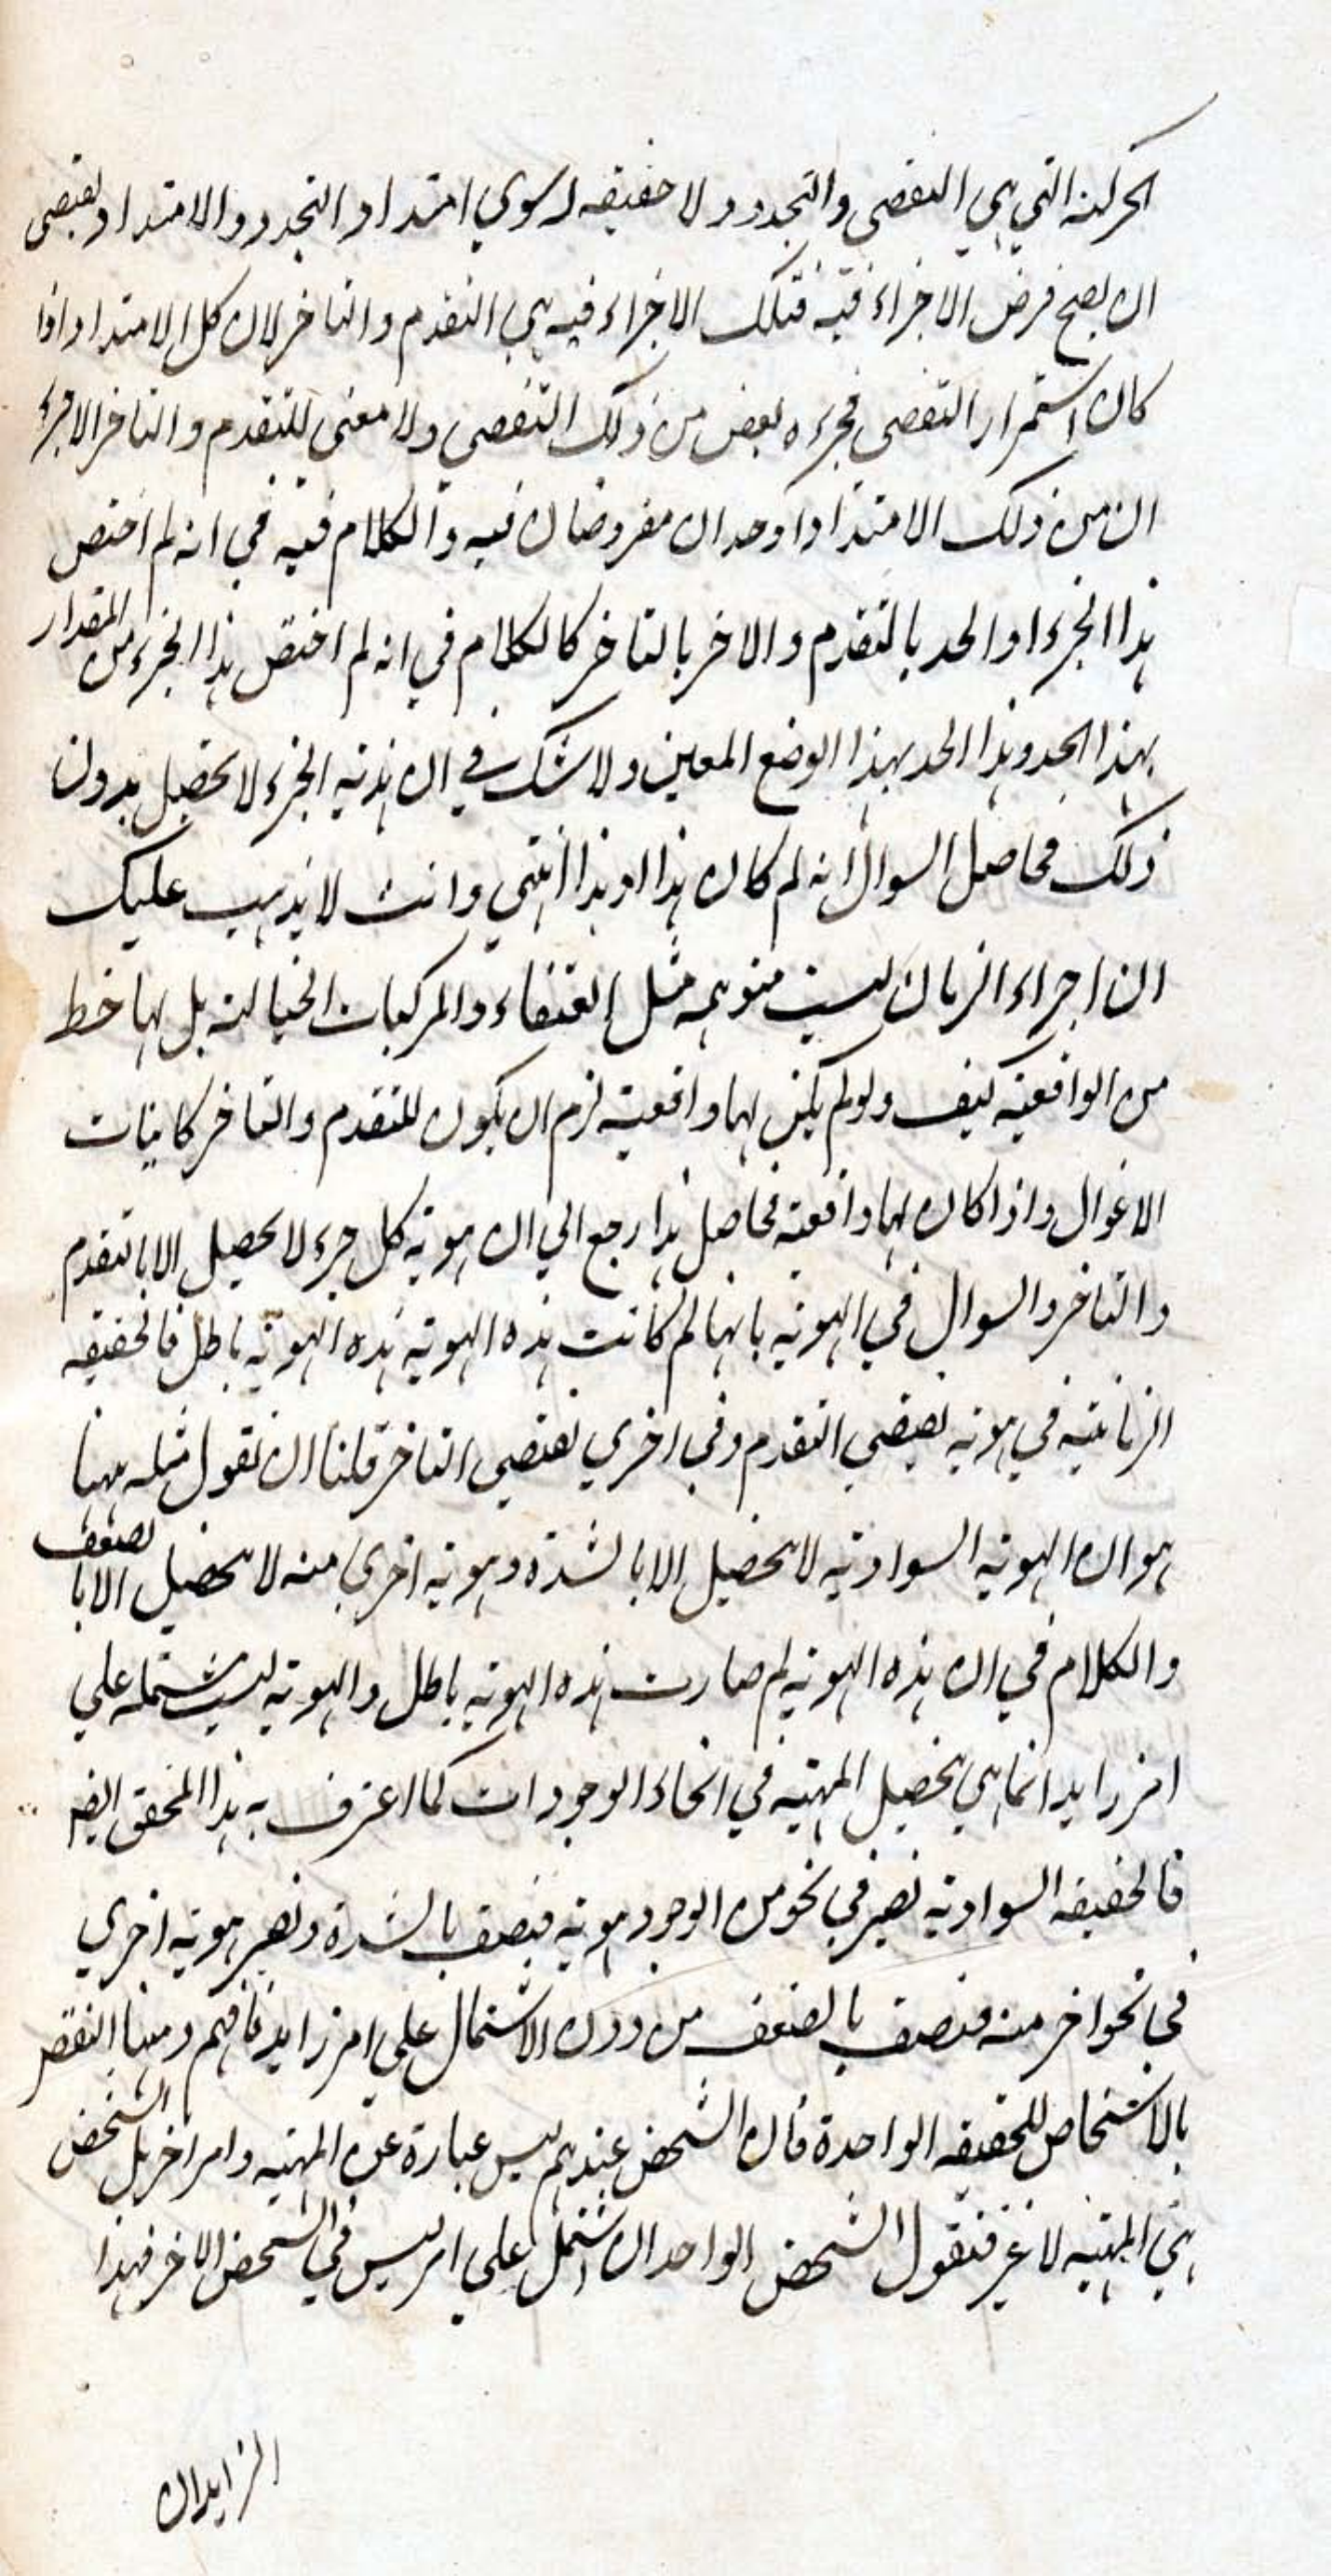 الحركة التي هي التقضي والتجدد ولا حقيقه له سوي امتداد التجدد والامتداد يقتضي
ان يصح فرض الاجزاء فيه فتلك الاجزاء فيه هي التقدم والتاخر لان كل الامتداد اذا
كان استمرار التقضي فجزءه بعض من ذلك التقضي ولا معنى للتقدم والتاخر الا جزء
ان من ذلك الامتداد او حدان مفروضان فيه والكلام فيه في انه لم اختص
هذا الجزء او الحد بالتقدم والاخر بالتاخر كالكلام في انه لم اختص هذا الجزء من المقدار
بهذا الحد وهذا الحد بهذا الوضع المعين ولا شك في ان هذية الجزء لا تحصل بدون
ذلك فحاصل السوال انه لم كان هذا او هذا انتهي وانت لا يذهب عليك
ان اجزاء الزمان ليست متوهمه مثل العنقاء والمركبات الخيالية بل لها خط
من الواقعية كيف ولو لم يكن لها واقعية لزم ان يكون للتقدم والتاخر كانياب
الاغوال واذا كان لها واقعية فحاصل هذا رجع الي ان هوية كل جزء لا يحصل الا بالتقدم
والتاخر والسوال في الهوية بانها لم كانت هذه الهوية هذه الهوية باطل فالحقيقه
الزمانية في هوية يقتضي التقدم وفي اخري تقتضي التاخر قلنا ان نقول مثله ههنا
هو ان الهوية السوادية لا تحصل الا بالشدة وهوية اخري منه لا تحصل الا بالضعف
والكلام في ان هذه الهوية لم صارت هذه الهوية باطل والهوية ليست مشتمله علي
امر زايد انما هي تحصل المهية في انحاء الوجودات كما اعترف به هذا المحقق ايضا
فالحقيقه السوادية تصير في نحو من الوجود هوية فيتصف بالشدة وتصير هوية اخري
في نحو اخر منه فتتصف بالضعف من دون الاشتمال علي امر زايد فافهم ومنها النقض
بالاشخاص للحقيقه الواحدة فان الشخص عندهم ليس عبارة عن المهية وامر اخر بل الشخص
هي المهية لا غير فنقول الشخص الواحد ان اشتمل علي امر ليس في الشخص الاخر فهذا
الزايد ان